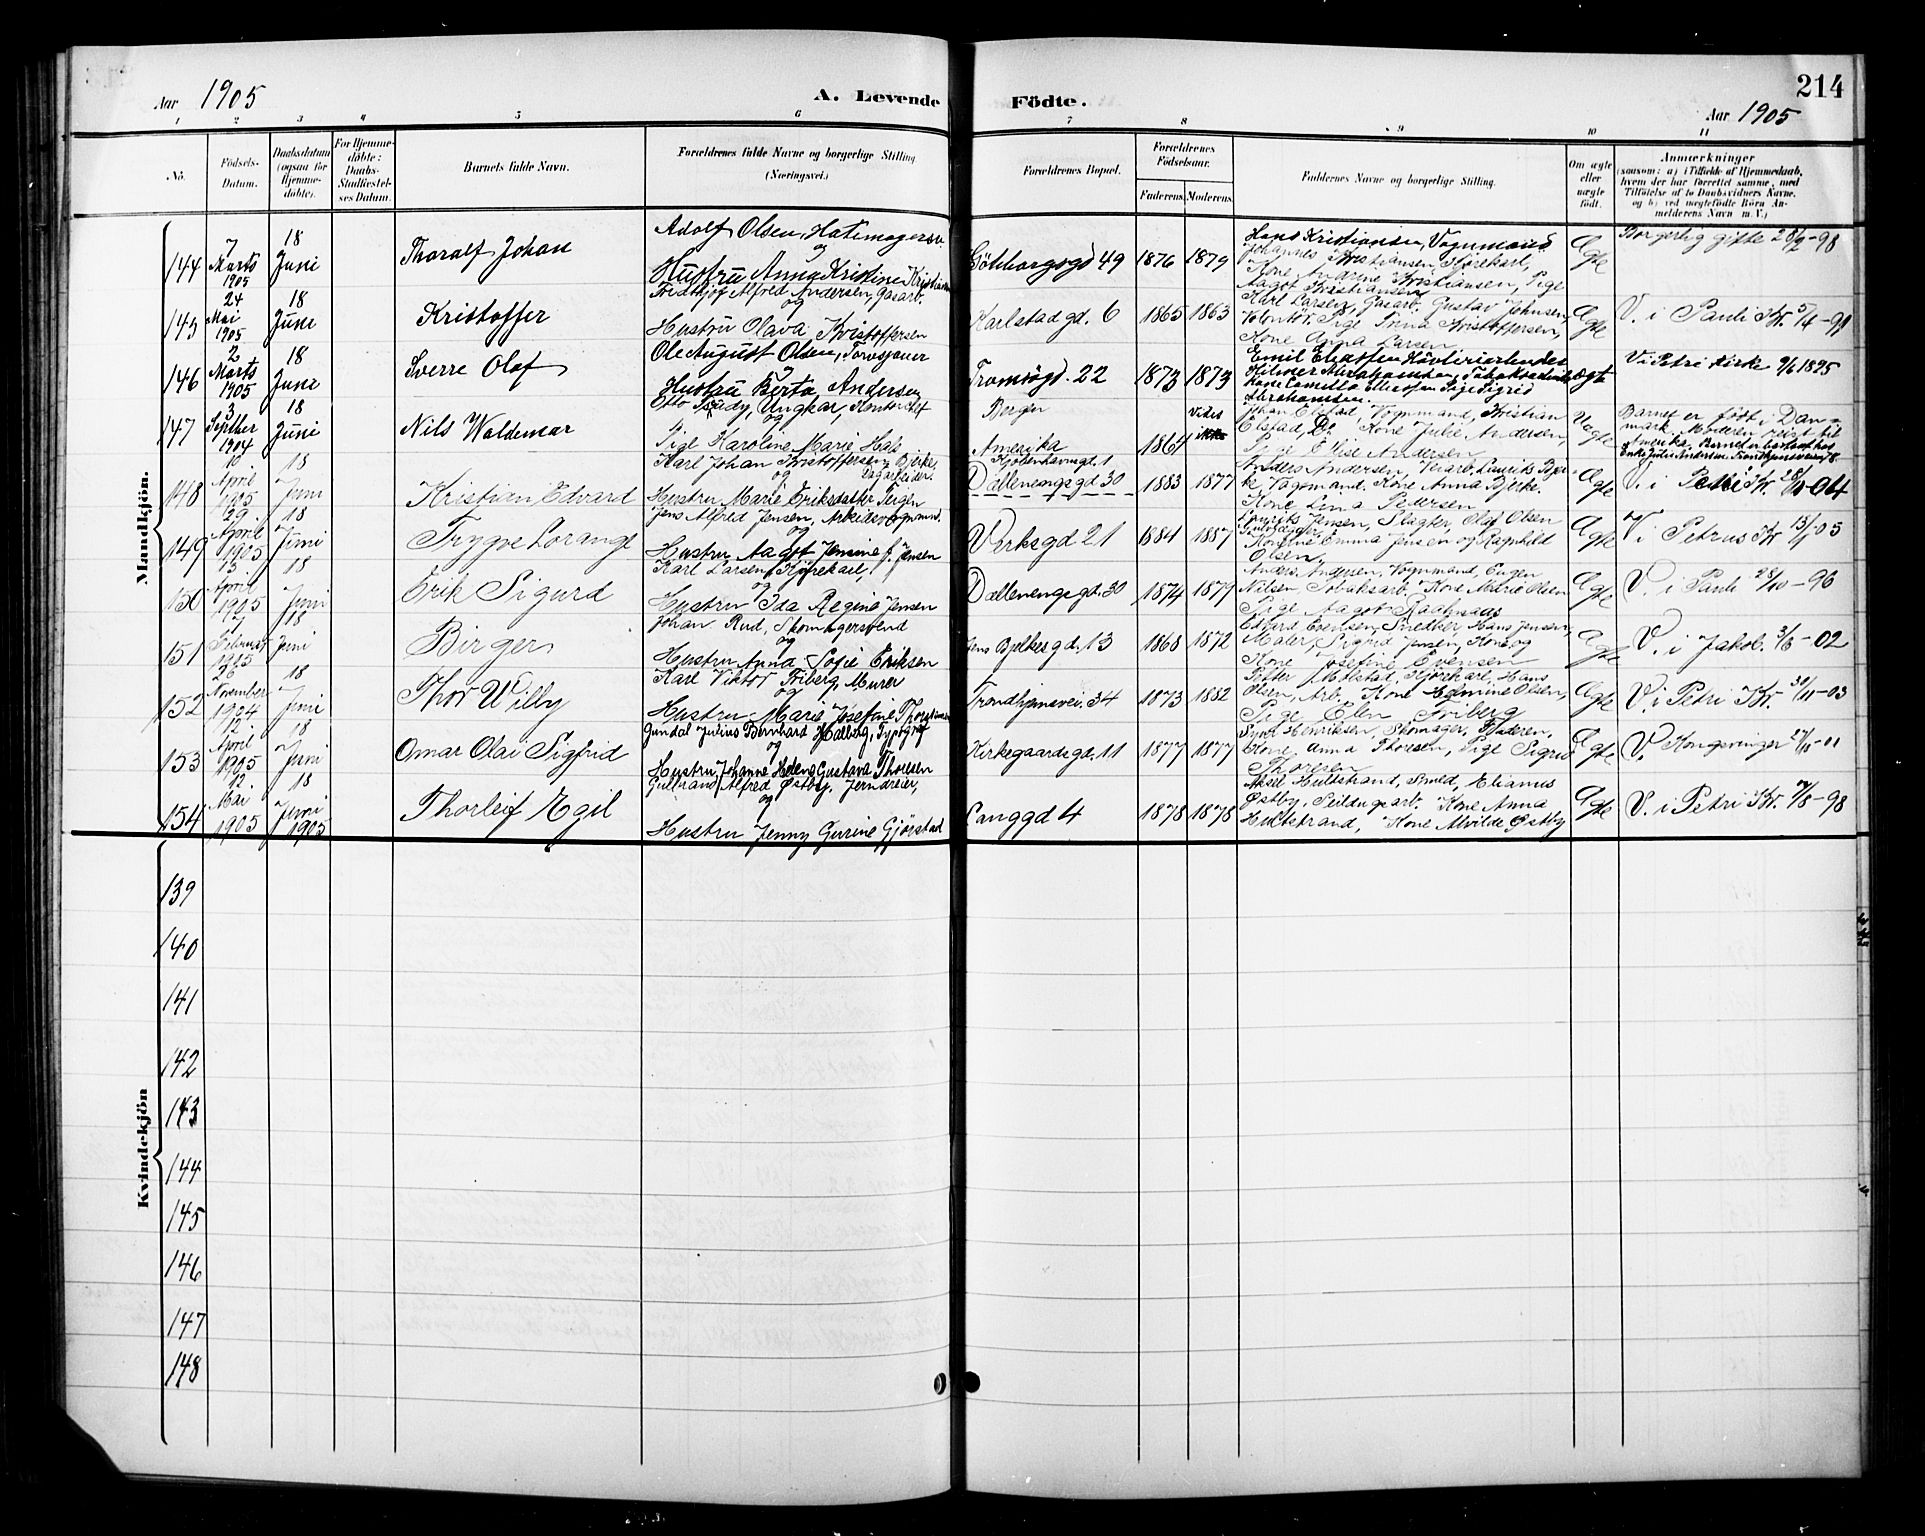 Aar 1905
A. Levende Födte.
214
Aar 1905
1 2 3 4 5 6 7 8 9 10 11
No.
Födsels-Datum.
Daabsdatum (ogsaa for Hjemme-döbte).
For Hjemme-döbte: Daabs-Stadfæstel-ses Datum.
Barnets fulde Navn.
Forældrenes fulde Navne og borgerlige Stilling (Næringsvei.)
Forældrenes Bopæl.
Forældrenes Födselsaar.
Faderens. Moderens.
Faddernes Navne og borgerlige Stilling.
Om ægte eller uægte födt.
Anmærkninger
(saasom: a) i Tilfælde af Hjemmedaab,
hvem der har forrettet samme, med
Tilföielse af to Daabsvidners Navne,
og b) ved uægtefödte Börn An-
melderens Navn m. V.)
Mandkjön.
144 7 Marts 1905 18 Juni Thoralf Johan
Adolf Olsen, Hatemagersv.
og
Hustru Anna Kristine Kristiansen
Götborgsgd 49 1876 1879
Hans Kristiansen, Vognmand
Johannes Kristiansen, Kjørekarl,
Kone Andrine Kristiansen, Pige
Aagot Kristiansen
Ægte Borgerlig gifte 28/2-98
145 24 Mai 1905 18 Juni Kristoffer
Fridthjof Alfred Andersen, Gasarb.
og
Hustru Olava Kristoffersen
Karlstadgd. 6 1865 1863
Karl Larsen, Gasarb. Gustav Johnsen,
Volontör. Pige Anna Kristoffersen,
Kone Anna Larsen
Ægte V. i Pauli Kr. 5/4-91
146 2 Marts 1905 18 Juni Sverre Olaf
Ole August Olsen, Torvsjauer
og
Hustru Berta Andersen
Tromsögd. 22 1873 1873
Emil Eliassen
Hilmer Abrahamsen,
Kone Camilla Eliassen Pige Sigrid
Abrahamsen.
Ægte V i Petri Kirke 9/6 1895
147 3 Septber 1904 18 Juni Nils Waldemar
Otto Ungkar, Kontorchef
og
Pige Karoline Marie Hals
Bergen
Amerika
vides ikke
1864
Johan Elstad, Vognmand, Kristian
Elstad, Do. Kone Julie Andersen,
Pige Elise Andersen
Uægte
Barnet er födt i Dan-
mark. Moderen reist til
Amerika. Barnet er bortsat hos
Enke Julie Andersen Trondhjemsvei 78.
148 10 April 1905 18 Juni Kristian Edvard
Karl Johan Kristoffersen Bjerke,
og Lagarbeider.
Hustru Marie Eriksdatter Bergen
Kjöbenhavnsgt 1
Dælenengsgd 30 1883 1877
Anders Andersen, Verarb. Laurits Bjer-
ke, Vognmand. Kone Anna Bjerke.
Kone Lina Pedersen
Ægte V. i Petri Kr. 28/10-04
149 29 April 1905 18 Juni Trygve Lorange
Jens Alfred Jensen, Arbeidsvognmand.
og
Hustru Aagot Jensine J. Jensen
Verksgd 21 1884 1887
Laurits Jensen, Slagter, Olaf Olsen
Konene Emma Jensen og Ragnhild
Olsen,
Ægte V i Petrus Kr 15/1-05
150 13 April 1905 18 Juni Erik Sigurd
Karl Larsen, Kjørekarl,
og
Hustru Ida Regine Jensen
Dælenengsgd. 30 1874 1879
Anders Andersen, Vognmand, Eugen
Nilsen Tobaksarb, Kone Marie Olsen
Pige Aagot Raahnaus
Ægte V. i Pauli 28/10-96
151 Februar 1905 18 Juni Birger
Johan Rud, Skomagersvend
og
Hustru Anna Sofie Eriksen
Jens Bjelkesgd. 13 1868 1872
Edvard Evensen, Snedker, Hans Jensen,
Maler, Sigrid Jensen, Kone og
Kone Josefine Evensen
Ægte V. i Jakob. 3/8-02
152 26 November 1904 18 Juni Thor Willy
Karl Viktor Friberg, Murer
og
Hustru Marie Josefine Thorstensen
Trondhjemsvei. 34 1873 1882
Petter Milstad, Kjørekarl, Hans
Olsen, Arb, Kone Helmine Olsen,
Pige Elen Friberg
Ægte V. i Petri Kr. 30/11-03
153 12 April 1905 18 Juni Omar Olai Sigfrid
Gundal Julius Bernhard Halberg, Typograf
og
Hustru Johanne Helene Gustava Thoresen
Kirkegaardsgd. 11 1877 1877
Syver Henriksen, Skomager, Faderen,
Kone Anna Thoresen, Pige Sigrid
Thoresen
Ægte V. Kongsvinger 27/11-01
154 12 Mai 1905 18 Juni 1905 Thorleif Egil
Gulbrand Alfred Østby, Jerndreier,
og
Hustru Jenny Gurine Gjørstad
Langgd 4 1878 1878
Aksel Hultstrand, Smed, Elianus
Østby, Seildugsarb. Kone Anna
Hultstrand, Kone Alvilde Østby
Ægte V. i Petri Kr. 7/8-98
Kvindekjön
139
140
141
142
143
144
145
146
147
148